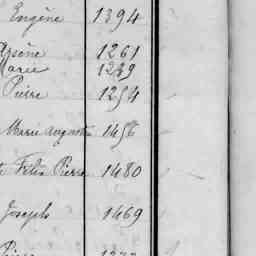 Eugène 1394
Arsène 1261
Marie 1239
Pierre 1254
Marie Augustin 1456
Félix Pierre 1480
Joseph 1469